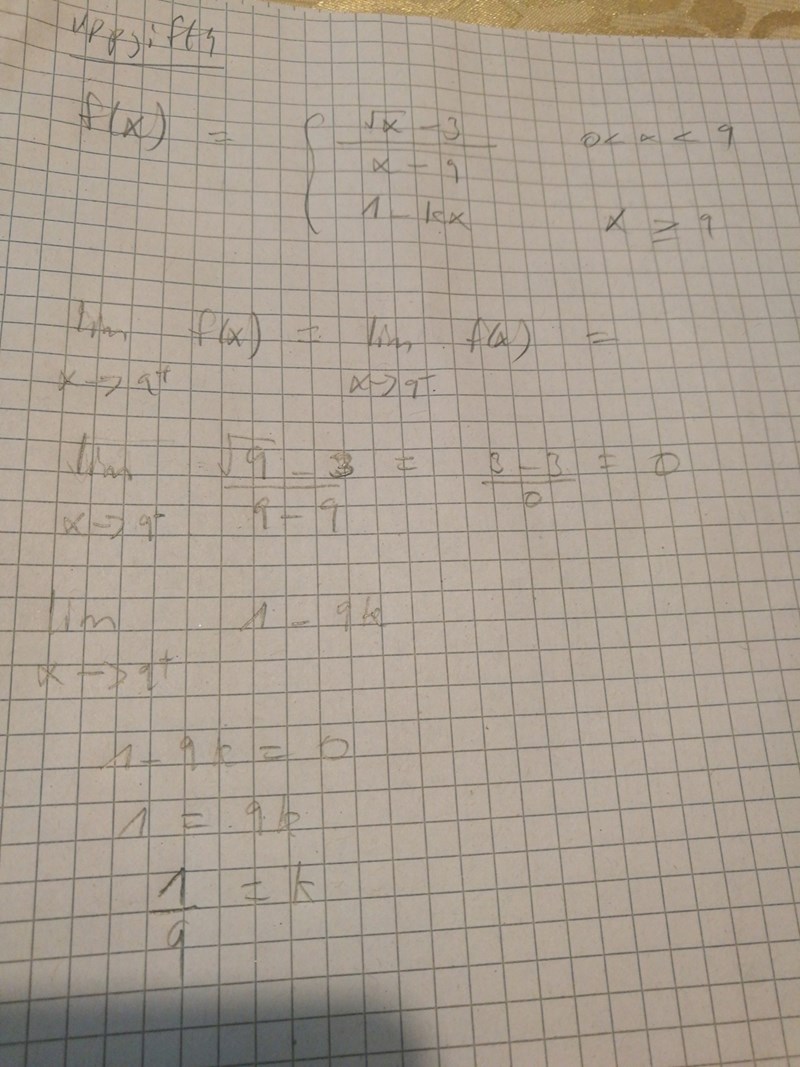 Uppgift 4
f(x) = { (√x - 3)/(x - 9)    0 < x < 9
1 - kx    x ≥ 9
lim x→9+ f(x) = lim x→9- f(x) =
lim x→9- (√9 - 3)/(9 - 9) = (3 - 3)/0 = 0
lim x→9+ 1 - 9k
1 - 9k = 0
1 = 9k
1/9 = k